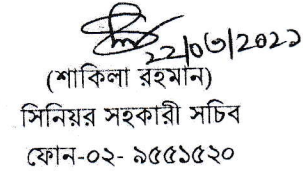 ২২/০৩/২০২১
(শাকিলা রহমান)
সিনিয়র সহকারী সচিব
ফোন-০২- ৯৫৫১৫২০